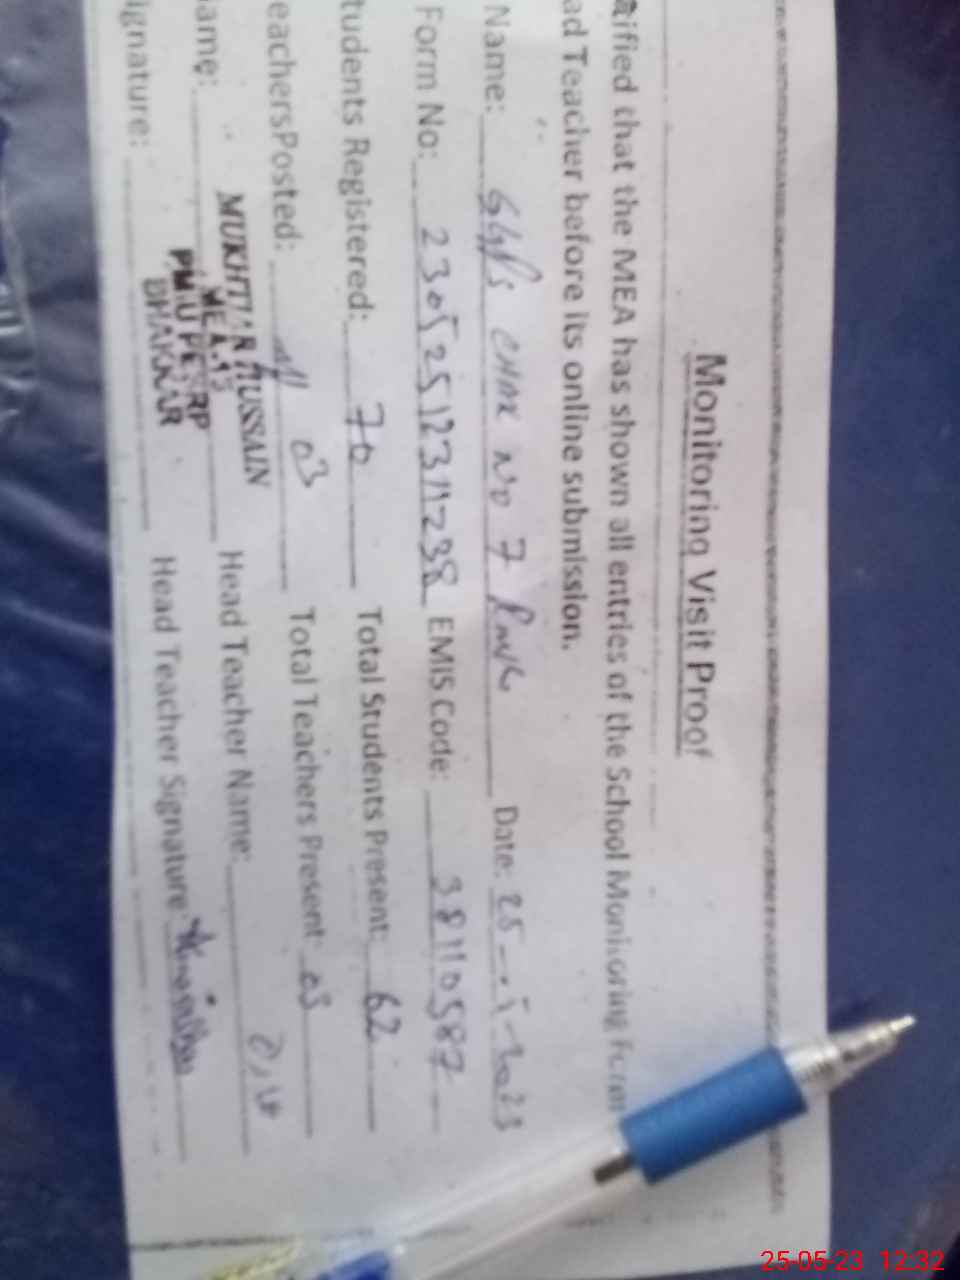 Monitoring Visit Proof
ified that the MEA has shown all entries of the School Monitoring Form
ad Teacher before its online submission.
Name: GGPS CHAK NO 7 Date: 25-5-2023
Form No: EMIS Code: 38110587
tudents Registered: 70 Total Students Present: 62
eachersPosted: 03 Total Teachers Present: 03
ame: MUKHTIAR HUSSAIN Head Teacher Name:
MEA.
PMIU PESRP
BHAKKAR
ignature: Head Teacher Signature:
25-05-23 12:32